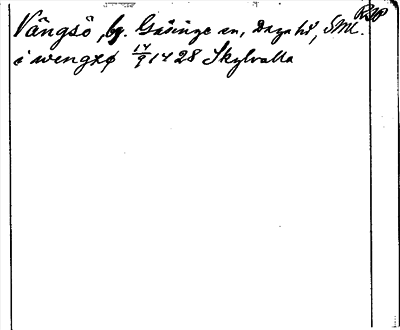 RAP
Vängsö, by. Gåvinge sn, Daga hd, Sml.
i wengxø 14/9 1428 Skylvalla